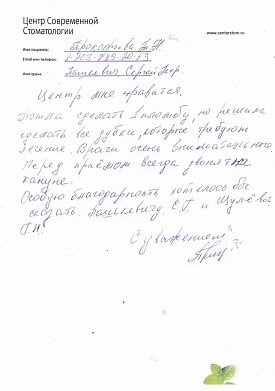 Центр Современной
Стоматологии
www.centerstom.ru
Имя пациента: Прокофьева Т.Н.
Email или телефон: 8-903-789-20-63
Имя врача: Пашкевич Сергей
Центр мне нравится.
Пошла сделать 1 пломбу, но решила
сделать все зубки, которые требуют
лечение. Врачи очень внимательные.
Перед приёмом всегда звонят на-
кануне.
Особую благодарность хотелось бы
сказать Пашкевичу С.Г. и
Г.И.
С уважением